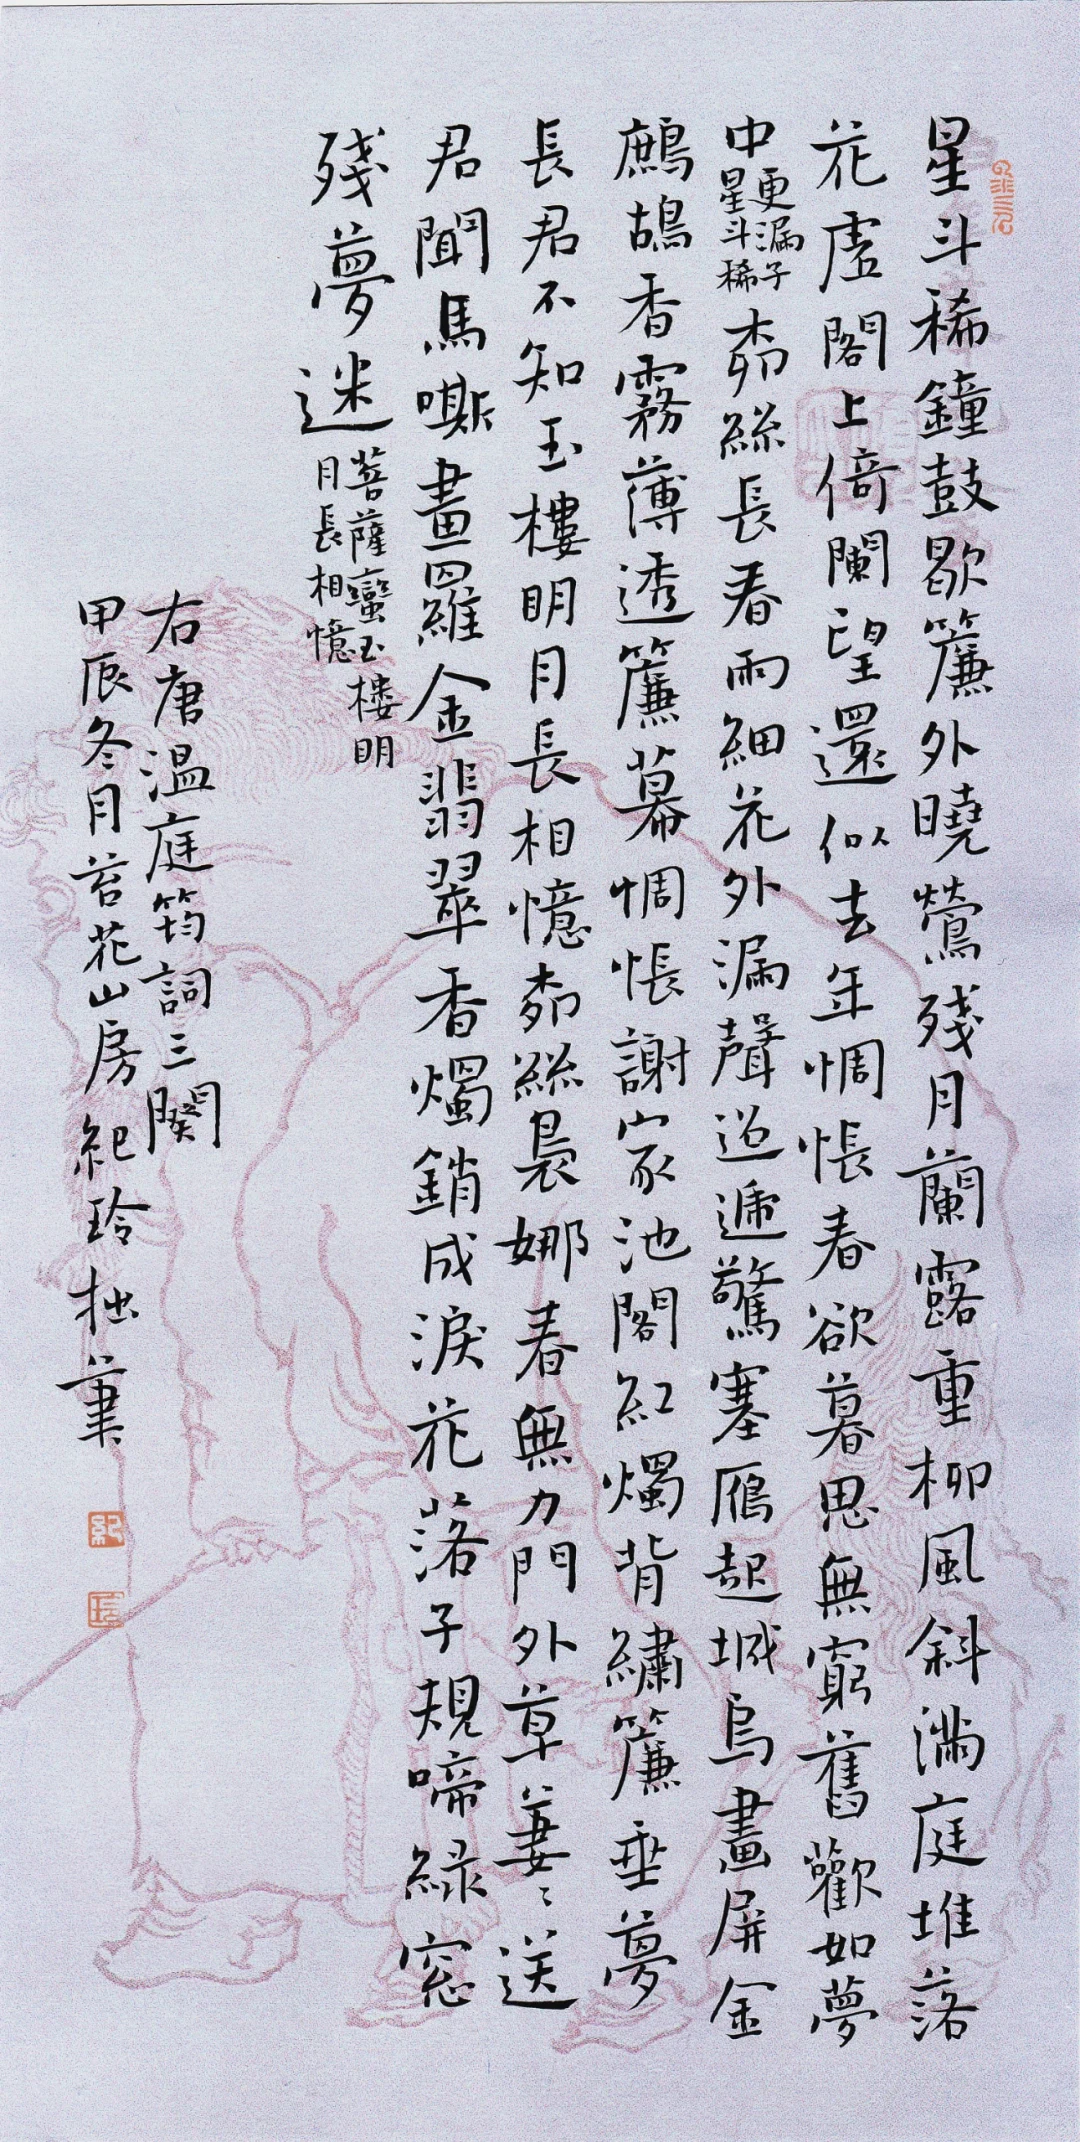 星斗稀鐘鼓歇簾外曉鶯殘月蘭露重柳風斜滿庭堆落
花虛閣上倚闌望還似去年惆悵春欲暮思無窮舊歡如夢
中
更漏子
星斗稀
柳絲長春雨細花外漏聲迢遞驚塞雁起城烏畫屏金
鷓鴣香霧薄透簾幕惆悵謝家池閣紅燭背繡簾垂夢
長君不知玉樓明月長相憶柳絲裊娜春無力門外草萋〻送
君聞馬嘶畫羅金翡翠香燭銷成淚花落子規啼綠窓
殘夢迷
菩薩蠻玉樓明
月長相憶
右唐溫庭筠詞三闋
甲辰冬月苔花山房紀玲拙筆
紀
玲